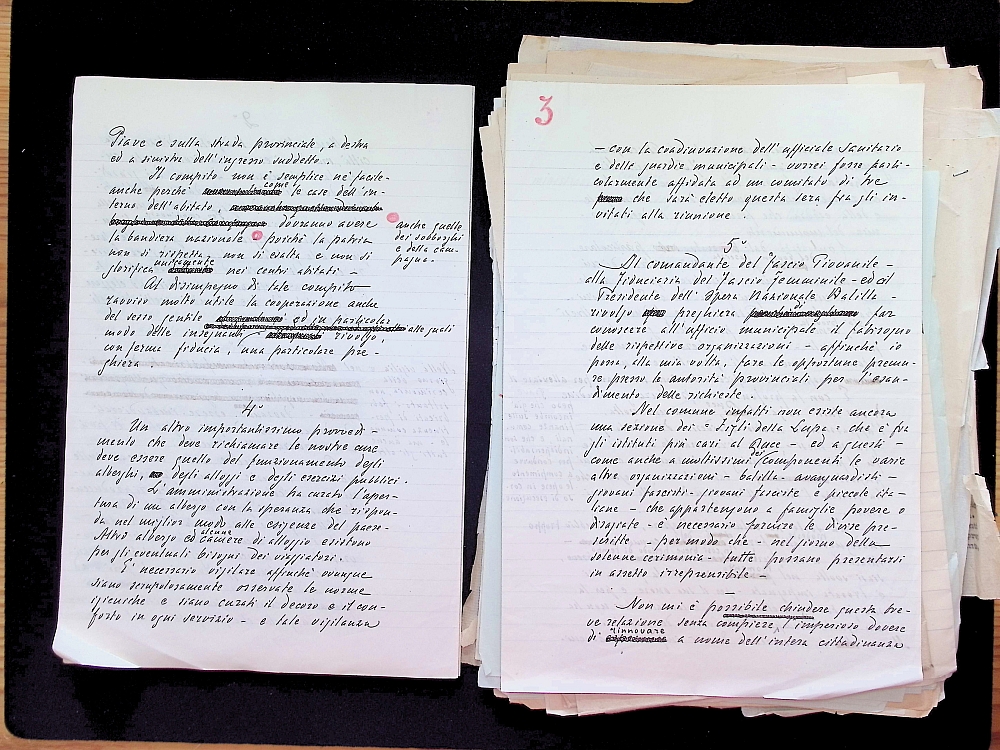 Piave e sulla strada provinciale, a destra
ed a sinistra dell'ingresso suddetto.
Il compito non è semplice nè facile -
anche perchè come le case dell'in-
terno dell'abitato,
dovranno avere
la bandiera nazionale poichè la patria
anche quelle
dei sobborghi
e della cam-
pagna.
non si rispetta, non si esalta e non si
glorifica unicamente nei centri abitati -
Al disimpegno di tale compito
ravviso molto utile la cooperazione anche
del sesso gentile ed in particolar
modo delle insegnanti alle quali
rivolgo,
con ferma fiducia, una particolare pre-
ghiera.
4°
Un altro importantissimo provvedi-
mento che deve richiamare le nostre cure
deve essere quello del funzionamento degli
alberghi, degli alloggi e degli esercizi pubblici.
L'amministrazione ha curato l'aper-
tura di un albergo con la speranza che rispon-
da nel miglior modo alle esigenze del paese -
Altro albergo ed alcune camere di alloggio esistono
per gli eventuali bisogni dei viaggiatori.
E' necessario vigilare affinchè ovunque
siano scrupolosamente osservate le norme
igieniche e siano curati il decoro e il con-
forto in ogni servizio - e tale vigilanza
3
- con la coadiuvazione dell'ufficiale sanitario
e delle guardie municipali - vorrei fosse parti-
colarmente affidata ad un comitato di tre
che sarà eletto questa sera fra gli in-
vitati alla riunione.
5°
Al comandante del Fascio Giovanile -
alla fiduciaria del Fascio Femminile - ed al
Presidente dell'Opera Nazionale Balilla -
rivolgo preghiera far
conoscere all'ufficio municipale il fabisogno
delle rispettive organizzazioni - affinchè io
possa, alla mia volta, fare le opportune premu-
re presso le autorità provinciali per l'esau-
dimento delle richieste.
Nel comune infatti non esiste ancora
una sezione dei "Figli della Lupa" che è fra
gli istituti più cari al Duce - ed a questi -
come anche a moltissimi componenti le varie
altre organizzazioni - balilla - avanguardisti -
giovani fascisti - giovani fasciste e piccole ita-
liane - che appartengono a famiglie povere o
disagiate - è necessario fornire le divise pre-
scritte - per modo che - nel giorno della
solenne cerimonia - tutte possano presentarsi
in assetto irreprensibile -
Non mi è possibile chiudere questa bre-
ve relazione senza compiere l'imperioso dovere
di rinnovare a nome dell'intera cittadinanza